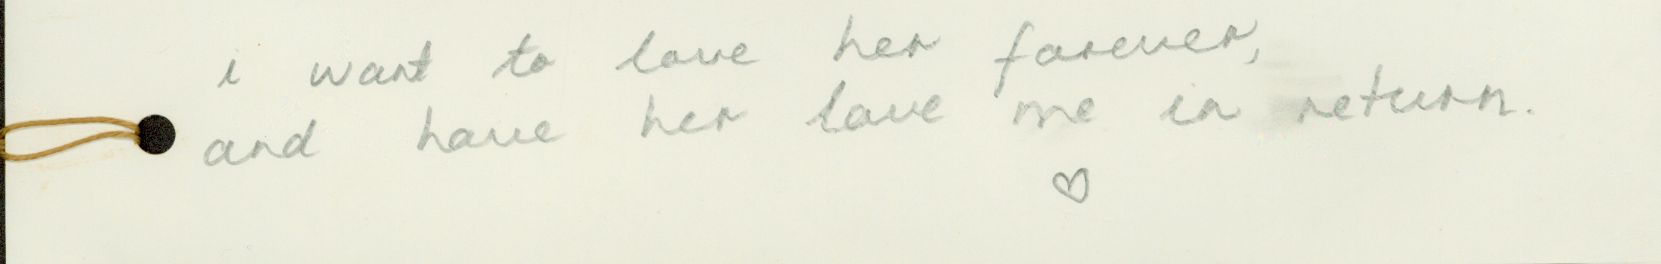 i want to love her forever,
and have her love me in return.
♡